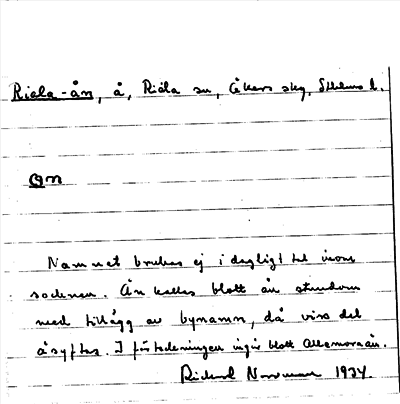 Riala-ån, å, Riala sn, Åkers skg, Sthlms l.
Ån
Namnet brukas ej i dagligt tal inom
socknen. Ån kallas blott ån stundom
med tillägg av bynamn, då viss del
åsyftas. I förteckningen ingår blott
Richard 1934.